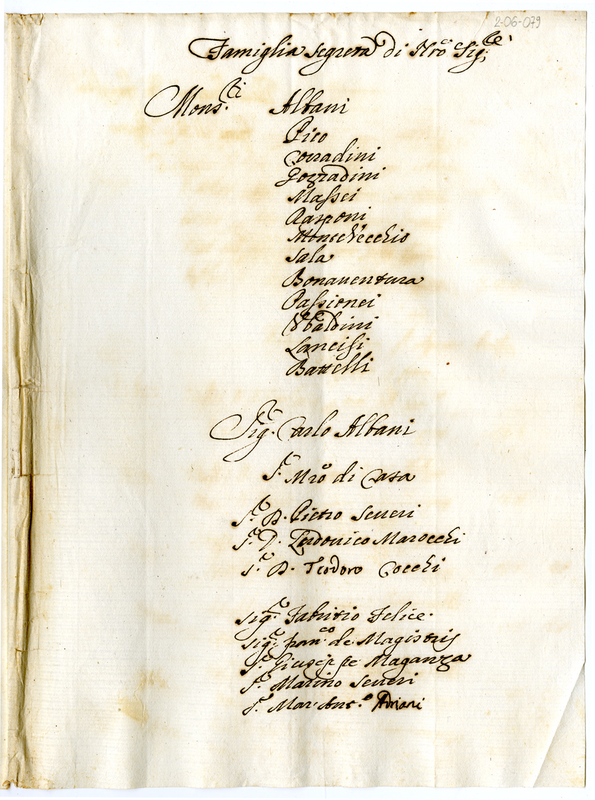 2-06-079
Famiglia segreta di Nro Sigre
Monsri Albani
Pico
Corradini
Gozzadini
Massei
Rasponi
Montevecchio
Sala
Bonaventura
Passionei
Ubaldini
Lancisi
Battelli
Sigr Carlo Albani
Sr Mro di Casa
Sr D. Pietro Severi
Sr D. Ludovico Marocchi
Sr D. Teodoro Cocchi
Sigr Fabritio Felice.
Sigr Franco de Magistris
Sr Giuseppe Maganza
Sr Marino Severi
Sr Mar Anto Adriani